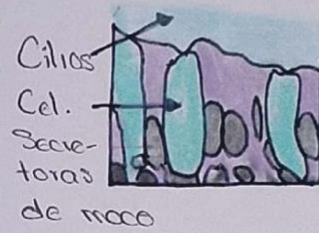 Cilios
Cel.
Secre-
toras
de moco